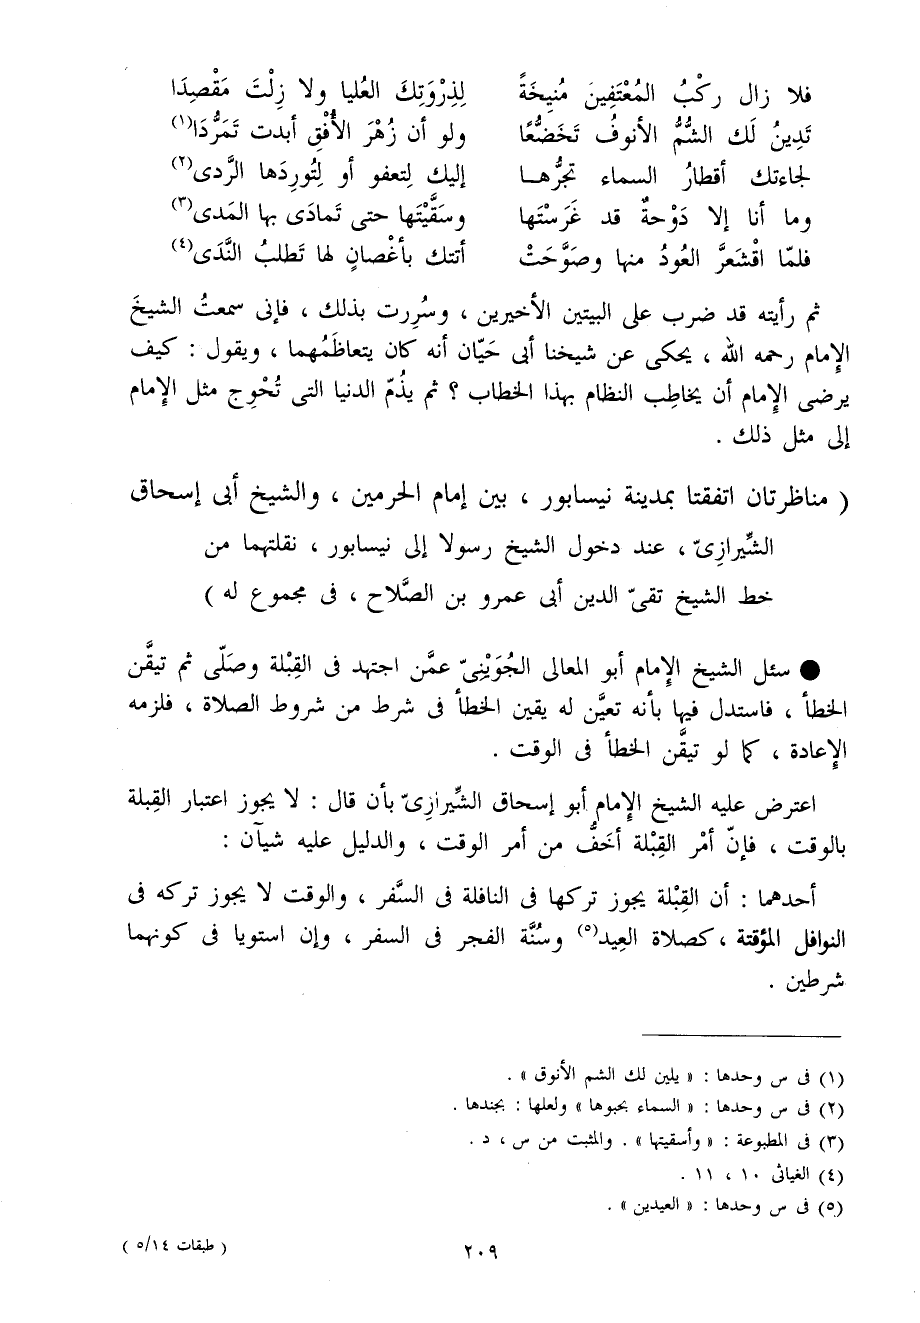 فلا زال ركْبُ المُعْتَفِينَ مُنِيخَةً لِذِرْوَتِكَ العُليا ولا زِلْتَ مَقْصِدَا
تَدِينُ لَك الشُّمُّ الأنوفُ تَخَضُّعًا ولو أن زُهْرَ الأُفْقِ أبدت تَمَرُّدَا(١)
لجاءتك أقطارُ السماء تجرُّهـا إليك لِتعفو أو لِتُورِدَها الرَّدى(٢)
وما أنا إلا دَوْحةٌ قد غَرَسْتَها وسَقَّيْتَها حتى تَمادَى بها المَدى(٣)
فلمّا اقْشَعرَّ العُودُ منها وصَوَّحَتْ أتتك بأغْصانٍ لها تَطلبُ النَّدَى(٤)
ثم رأيته قد ضرب على البيتين الأخيرين ، وسُرِرت بذلك ، فإنى سمعتُ الشيخَ
الإمام رحمه الله ، يحكى عن شيخنا أبى حَيّان أنه كان يتعاظَمُهما ، ويقول : كيف
يرضى الإمام أن يخاطِب النظام بهذا الخطاب ؟ ثم يذُمّ الدنيا التى تُحْوِج مثل الإمام
إلى مثل ذلك .
( مناظرتان اتفقتا بمدينة نيسابور ، بين إمام الحرمين ، والشيخ أبى إسحاق
الشِّيرازِىّ ، عند دخول الشيخ رسولا إلى نيسابور ، نقلتهما من
خط الشيخ تقىّ الدين أبى عمرو بن الصَّلاح ، فى مجموع له )
● سئل الشيخ الإمام أبو المعالى الجُوَيْنِىّ عمَّن اجتهد فى القِبْلة وصَلّى ثم تيقَّن
الخطأ ، فاستدل فيها بأنه تعيَّن له يقين الخطأ فى شرط من شروط الصلاة ، فلزمه
الإعادة ، كما لو تيقَّن الخطأ فى الوقت .
اعترض عليه الشيخ الإمام أبو إسحاق الشِّيرازِىّ بأن قال : لا يجوز اعتبار القِبلة
بالوقت ، فإنّ أمْر القِبْلة أخَفُّ من أمر الوقت ، والدليل عليه شيآن :
أحدهما : أن القِبْلة يجوز تركها فى النافلة فى السَّفر ، والوقت لا يجوز تركه فى
النوافل المؤقتة ، كصلاة العِيد(٥) وسُنَّة الفجر فى السفر ، وإن استويا فى كونهما
شرطين .
(١) فى س وحدها : « يلين لك الشم الأنوق » .
(٢) فى س وحدها : « السماء بحبوها » ولعلها : بجندها .
(٣) فى المطبوعة : « وأسقيتها » . والمثبت من س ، د .
(٤) الغياثى ١٠ ، ١١ .
(٥) فى س وحدها : « العيدين » .
٢٠٩
( طبقات ٥/١٤ )